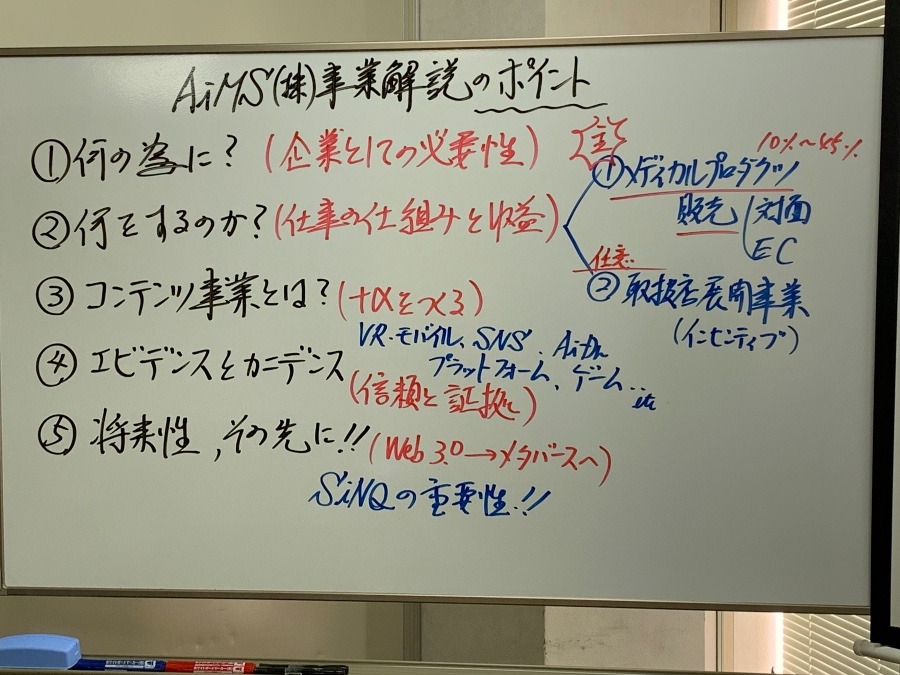 AiMS(株)事業解説のポイント
①何の為に？(企業としての必要性)
②何をするのか？(仕事の仕組みと収益)
③コンテンツ事業とは？(+αをつくる)
VR.モバイル、SNS、
プラットフォーム、ゲーム…
etc
④エビデンスとカニデンス
(信頼と証拠)
⑤将来性,その先に!!(Web 3.0→メタバースへ)
SiNQの重要性!!
10%～45%
①メディカルプロダクツ
販売 対面
EC
任意
②取扱店展開事業
(インセンティブ)